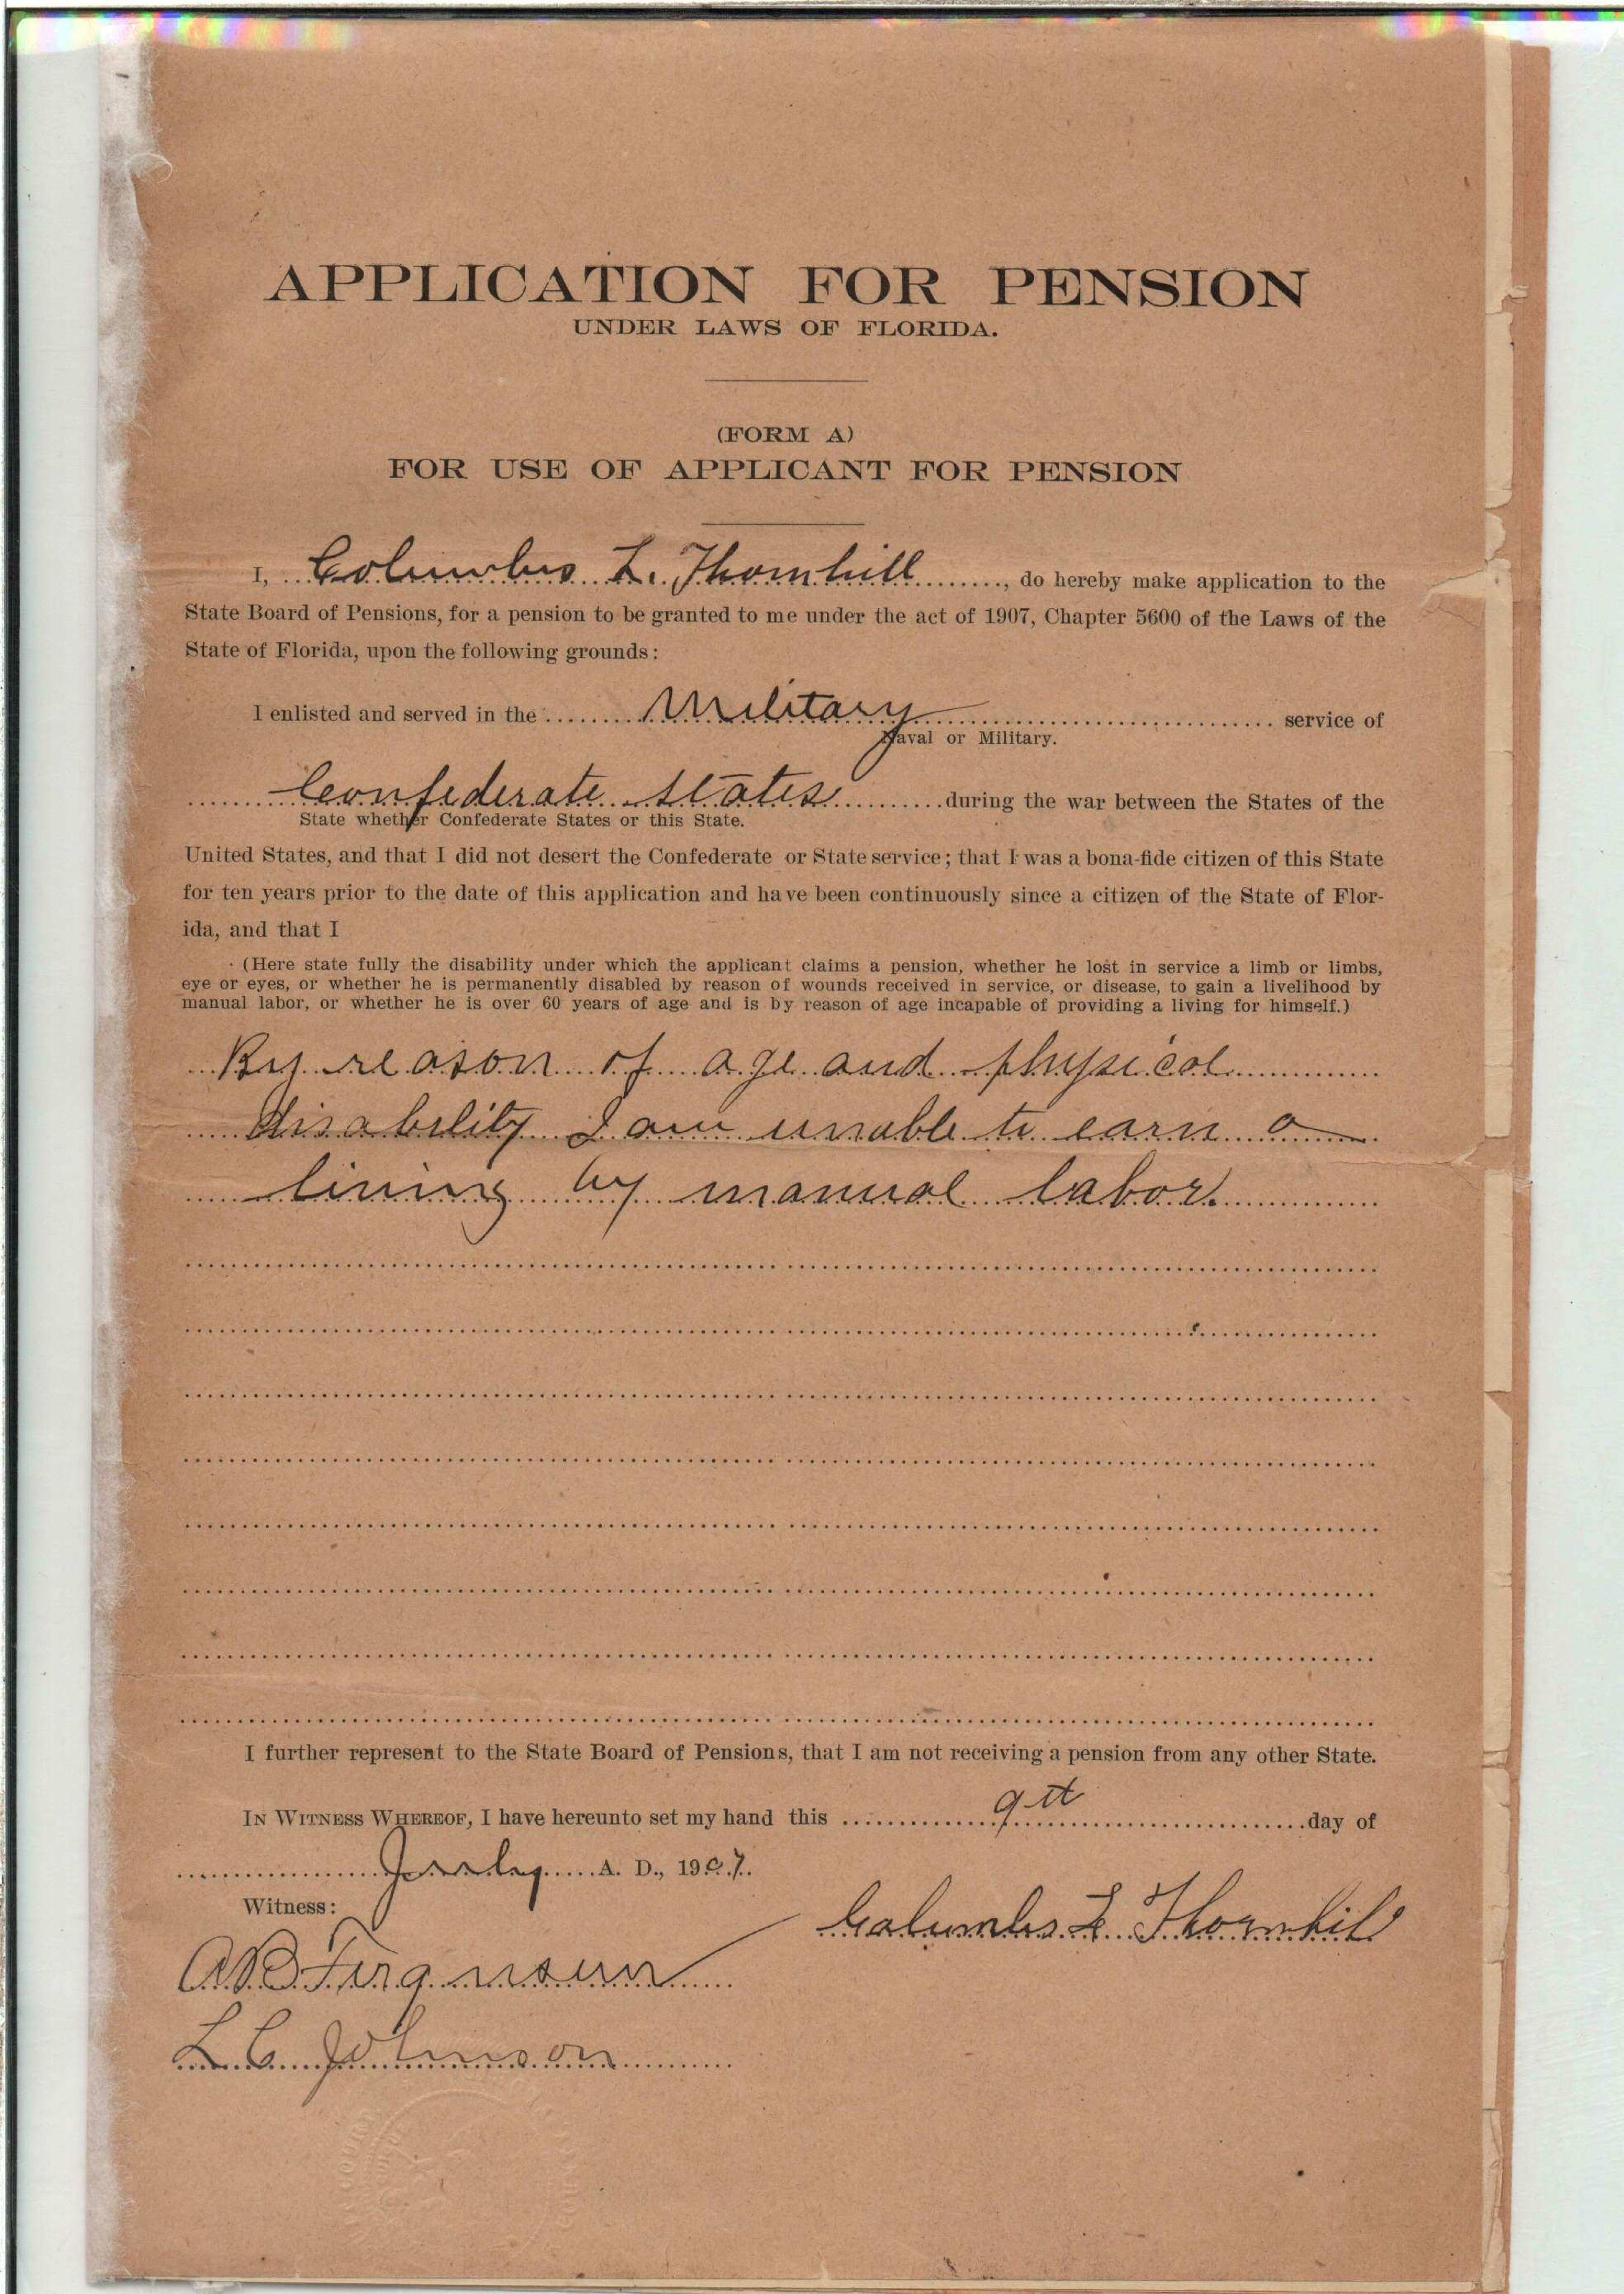 APPLICATION FOR PENSION
UNDER LAWS OF FLORIDA.
(FORM A)
FOR USE OF APPLICANT FOR PENSION
I, Columbus L. Thornhill, do hereby make application to the
State Board of Pensions, for a pension to be granted to me under the act of 1907, Chapter 5600 of the Laws of the
State of Florida, upon the following grounds:
I enlisted and served in the Military service of
Naval or Military.
Confederate States during the war between the States of the
State whether Confederate States or this State.
United States, and that I did not desert the Confederate or State service; that I was a bona-fide citizen of this State
for ten years prior to the date of this application and have been continuously since a citizen of the State of Flor-
ida, and that I
(Here state fully the disability under which the applicant claims a pension, whether he lost in service a limb or limbs,
eye or eyes, or whether he is permanently disabled by reason of wounds received in service, or disease, to gain a livelihood by
manual labor, or whether he is over 60 years of age and is by reason of age incapable of providing a living for himself.)
By reason of age and physical
disability I am unable to earn a
living by manual labor.
I further represent to the State Board of Pensions, that I am not receiving a pension from any other State.
IN WITNESS WHEREOF, I have hereunto set my hand this 9th day of
July A. D., 1907.
Witness:
Columbus L. Thornhill
L. C. Johnson